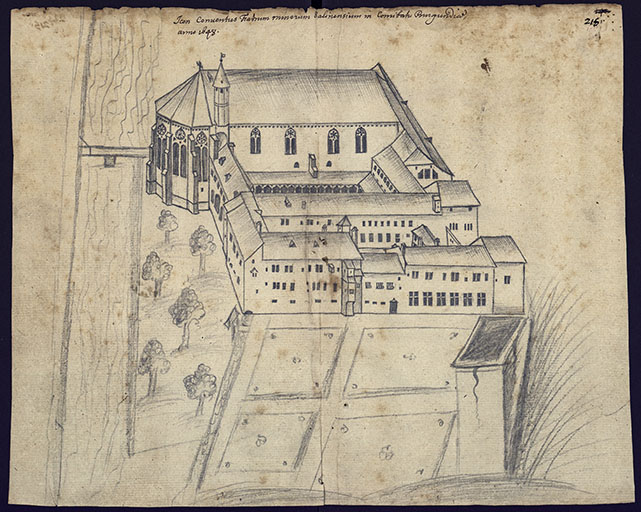 Icon Conventus Fratrum minorum Salinensium in Comitatu Burgundiæ
anno 1648.
215